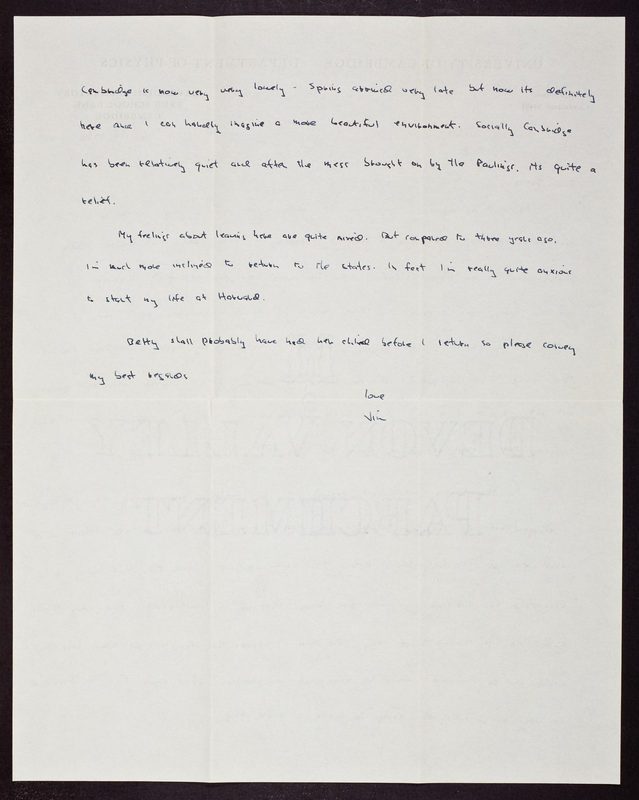 Cambridge is now very very lovely - Spring arrived very late but now its definitely
here and I can hardly imagine a more beautiful environment. Socially Cambridge
has been relatively quiet and after the mess brought on by the Paulings, its quite a
relief.
My feelings about leaving here are quite mixed. But compared to three years ago,
I'm much more inclined to return to the states. In fact I'm really quite anxious
to start my life at Harvard.
Betty shall probably have had her child before I return so please convey
my best regards
love
Jim
UNIVERSITY OF CAMBRIDGE DEPARTMENT OF PHYSICS
DEVON VALLEY
PARCHMENT